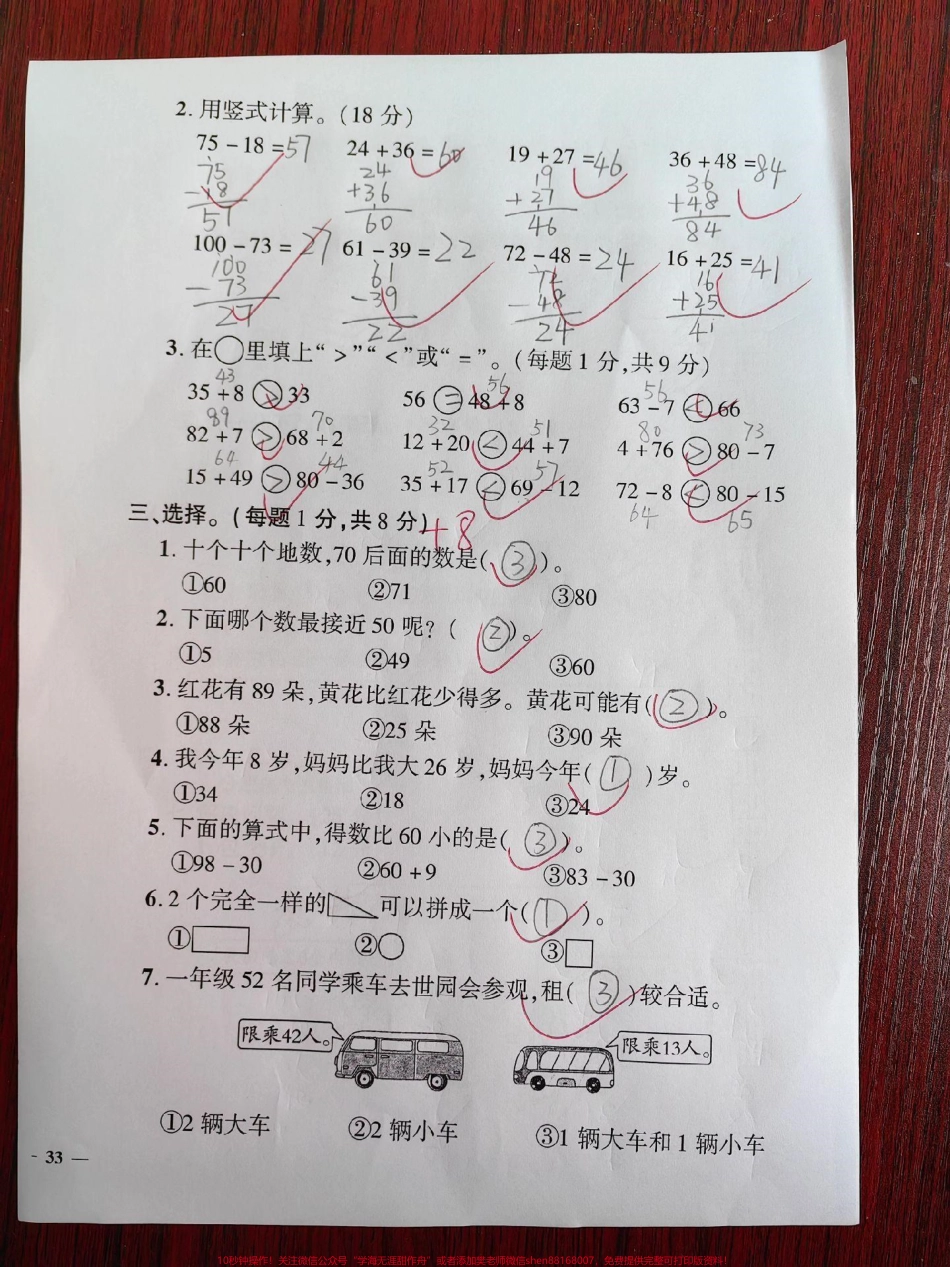 2. 用竖式计算。(18 分)
75 - 18 = 57 24 + 36 = 60 19 + 27 = 46 36 + 48 = 84
75 24 19 36
- 18 + 36 + 27 + 48
57 60 46 84
100 - 73 = 27 61 - 39 = 22 72 - 48 = 24 16 + 25 = 41
100 61 72 16
- 73 - 39 - 48 + 25
27 22 24 41
3. 在○里填上“ > ”“ < ”或“ = ”。(每题 1 分,共 9 分)
43 56 56
35 + 8 > 33 56 = 48 + 8 63 - 7 < 66
89 70 32 51 80 73
82 + 7 > 68 + 2 12 + 20 < 44 + 7 4 + 76 > 80 - 7
64 44 52 57
15 + 49 > 80 - 36 35 + 17 < 69 - 12 72 - 8 < 80 - 15
64 65
三、选择。(每题 1 分,共 8 分) +8
1. 十个十个地数,70 后面的数是( ③ )。
①60 ②71 ③80
2. 下面哪个数最接近 50 呢? ( ② )。
①5 ②49 ③60
3. 红花有 89 朵,黄花比红花少得多。黄花可能有( ② )。
①88 朵 ②25 朵 ③90 朵
4. 我今年 8 岁,妈妈比我大 26 岁,妈妈今年( ① )岁。
①34 ②18 ③24
5. 下面的算式中,得数比 60 小的是( ③ )。
①98 - 30 ②60 + 9 ③83 - 30
6. 2 个完全一样的 可以拼成一个( ① )。
① ② ③
7. 一年级 52 名同学乘车去世园会参观,租( ③ )较合适。
限乘42人。 限乘13人。
①2 辆大车 ②2 辆小车 ③1 辆大车和 1 辆小车
- 33 —
10秒钟操作！关注微信公众号“学海无涯甜作舟”或者添加吴老师微信shen88168007，免费提供完整可打印版资料！